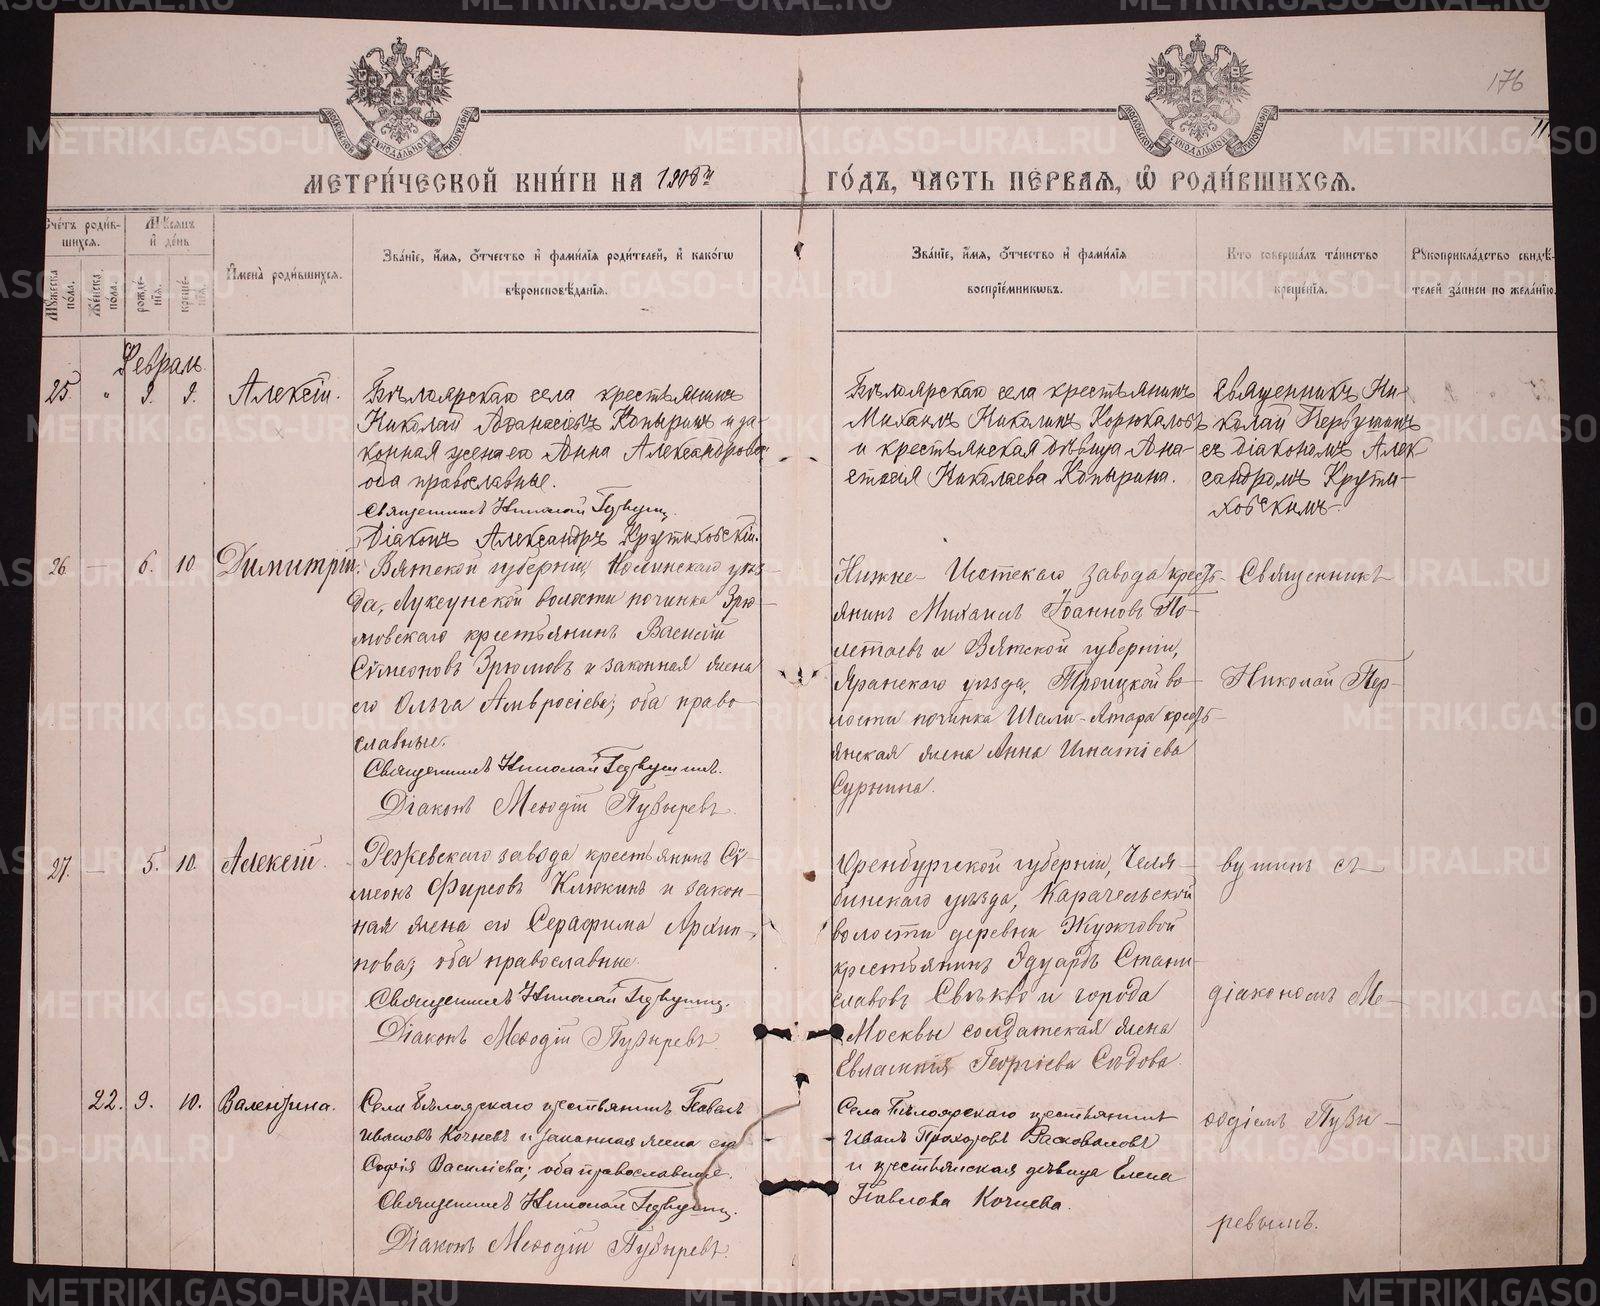 176
11
МЕТРИ́ЧЕСКОЙ КНИ́ГИ НА 1908й ГО́ДЪ, ЧАСТЬ ПЕ́РВАЯ, Ѡ РОДИ́ВШИХСЯ.
Счетъ роди́вшихся.
Мѣсяцъ и день
Мужеска пола.
Женска пола.
рождения.
крещения.
Имена роди́вшихся.
Зва́нїе, и҆́мя, ѻ҆́тчество и҆ фами́лїя роди́телей, и҆ како́гѡ
вѣроисповѣ́данїя.
Зва́нїе, и҆́мя, ѻ҆́тчество и҆ фами́лїя
воспрїе́мникѡвъ.
Кто соверша́лъ та́инство
креще́нїя.
Рукоприкла́дство свидѣ́-
телей за́писи по жела́нїю.
Февраль
25. " 9. 9. Алексій.
Бѣлоярскаго села крестьянинъ
Николай Аѳанасіевъ Копыринъ и за-
конная жена его Анна Александрова
оба православные.
Священникъ Николай Первушинъ
Діаконъ Александръ Крутиховскій.
Бѣлоярскаго села крестьянинъ
Михаилъ Николинъ Корюкаловъ
и крестьянская дѣвица Ана-
стасія Николаева Копырина.
Священникъ Ни-
колай Первушинъ
съ діакономъ Алек
сандромъ Крути-
ховскимъ
26 — 6. 10 Димитрій.
Вятской губерніи, Нолинскаго уѣз-
да, Луксунской волости починка Зрю-
мовскаго крестьянинъ Василій
Сѵмеоновъ Зрюмовъ и законная жена
его Ольга Амвросіева; оба право-
славные.
Священникъ Николай Первушинъ.
Діаконъ Меѳодій Пузыревъ
Нижне-Исетскаго завода кресть-
янинъ Михаилъ Іоанновъ По-
летаевъ и Вятской губерніи,
Яранскаго уѣзда, Троицкой во-
лости починка Шали-Ятара кресть-
янская жена Анна Игнатіева
Сурнина.
Священникъ
Николай Пер-
27. — 5. 10. Алексій.
Режевскаго завода крестьянинъ Сѵ-
меонъ Фирсовъ Клюкинъ и закон-
ная жена его Серафима Архип-
пова; оба православные.
Священникъ Николай Первушинъ.
Діаконъ Меѳодій Пузыревъ
Оренбургской губерніи, Челя-
бинскаго уѣзда, Карачельской
волости деревни Жужговой
крестьянинъ Эдуардъ Стани-
славовъ и города
Москвы солдатская жена
Евлампія Георгіева Сѣдова.
вушинъ съ
діакономъ Ме-
22. 9. 10. Валентина.
Села Бѣлоярскаго крестьянинъ Павелъ
Ивановъ Кочневъ и законная жена его
Софія Василіева; оба православные.
Священникъ Николай Первушинъ.
Діаконъ Меѳодій Пузыревъ.
Села Бѣлоярскаго крестьянинъ
Иванъ Прохоровъ Расковаловъ
и крестьянская дѣвица Елена
Павлова Кочнева.
ѳодіемъ Пузы-
ревымъ.